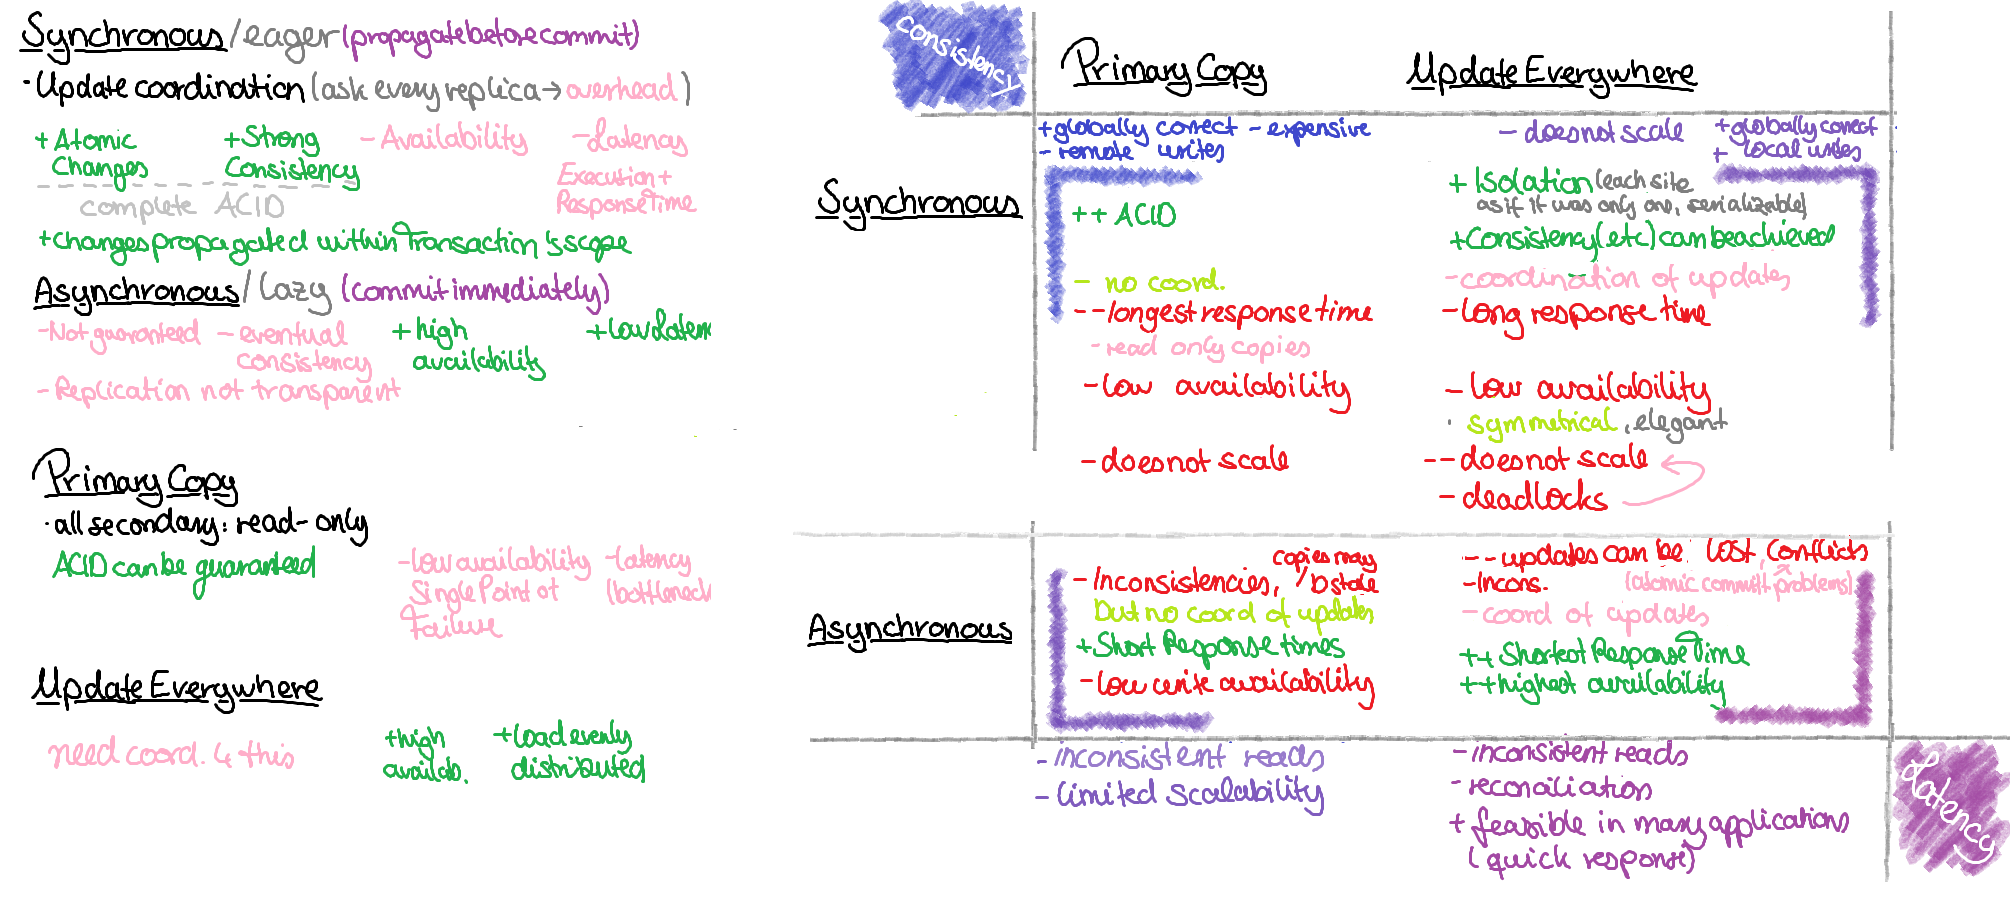 Synchronous/eager (propagate before commit)
· Update coordination (ask every replica → overhead)
+ Atomic Changes
+ Strong Consistency
- Availability
- Latency
Execution + Response Time
complete ACID
+ changes propagated within Transaction's scope
Asynchronous/Lazy (commit immediately)
- Not guaranteed
- eventual consistency
+ high availability
+ low Laten
- Replication not transparent
Primary Copy
· all secondary: read-only
ACID can be guaranteed
- low availability
Single Point of Failure
- latency
(bottleneck
Update Everywhere
need coord. 4 this
+ high availab.
+ load evenly distributed
consistency
Primary Copy
Update Everywhere
Synchronous
+ globally correct - expensive
- remote writes
++ ACID
- no coord.
-- longest response time
- read only copies
- low availability
- does not scale
- does not scale
+ globally correct
+ local writes
+ Isolation (each site
as if it was only one, serializable)
+ Consistency (etc) can be achieved
- coordination of updates
- long response time
- low availability
· symmetrical, elegant
-- does not scale
- deadlocks
Asynchronous
copies may
- Inconsistencies, / b stale
But no coord of updates
+ Short Response times
- low write availability
- inconsistent reads
- limited scalability
-- updates can be lost, conflicts
- Incons.
(atomic commit problems)
- coord of updates
++ Shortest Response Time
++ highest availability
- inconsistent reads
- reconciliation
+ feasible in many applications
(quick response)
Latency